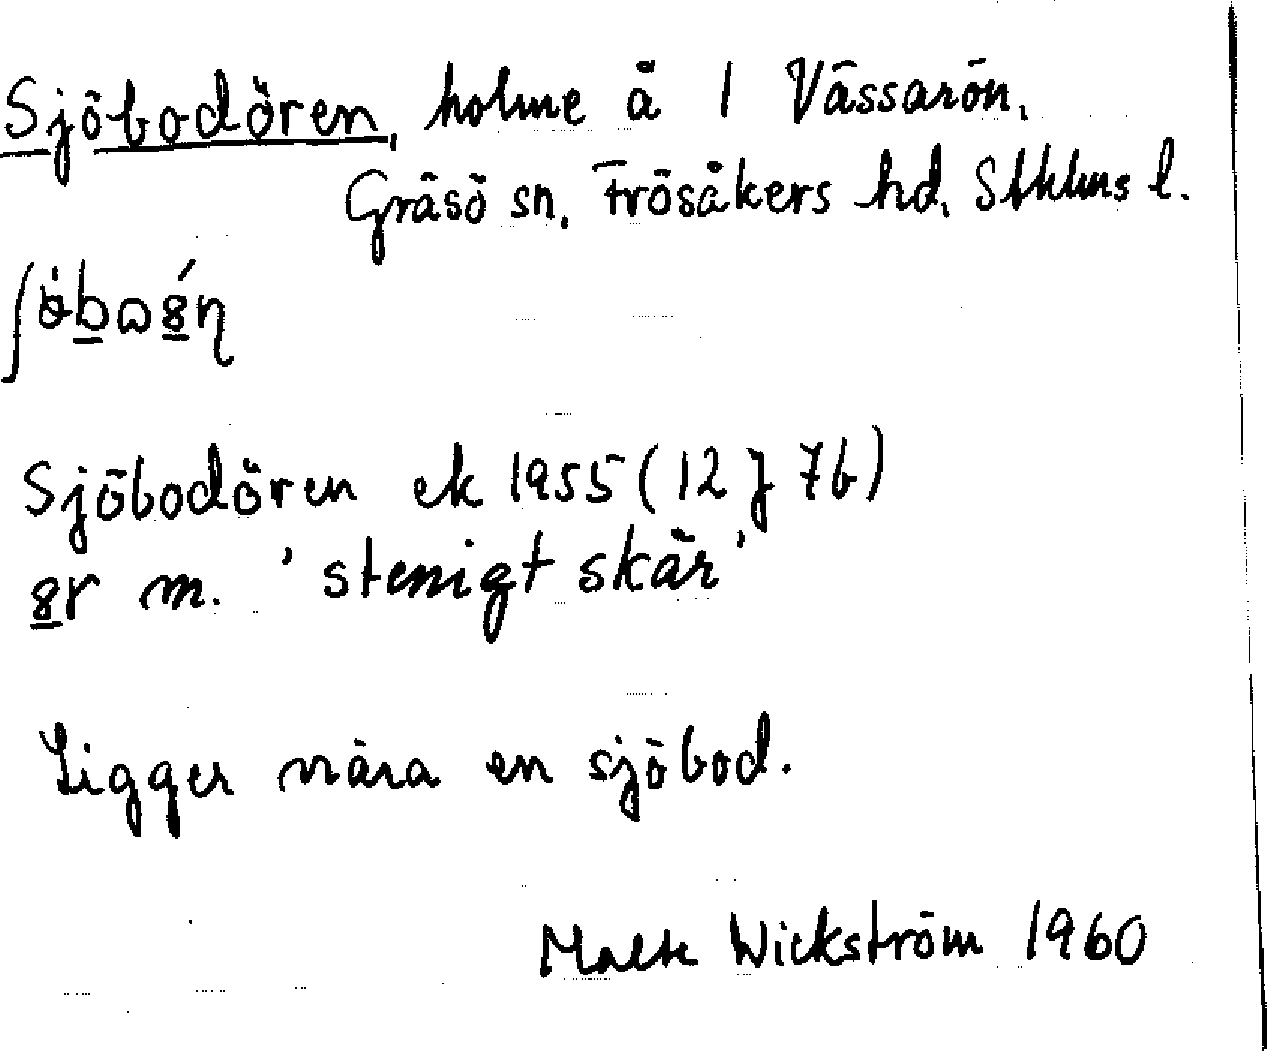 Sjöbodören, holme å 1 Vässarön,
Gräsö sn, Frösåkers hd, Sthlms l.
Sjöbodören ek 1955 (12 J 7b)
m. 'stenigt skär'
Ligger nära en sjöbod.
Malte Wickström 1960